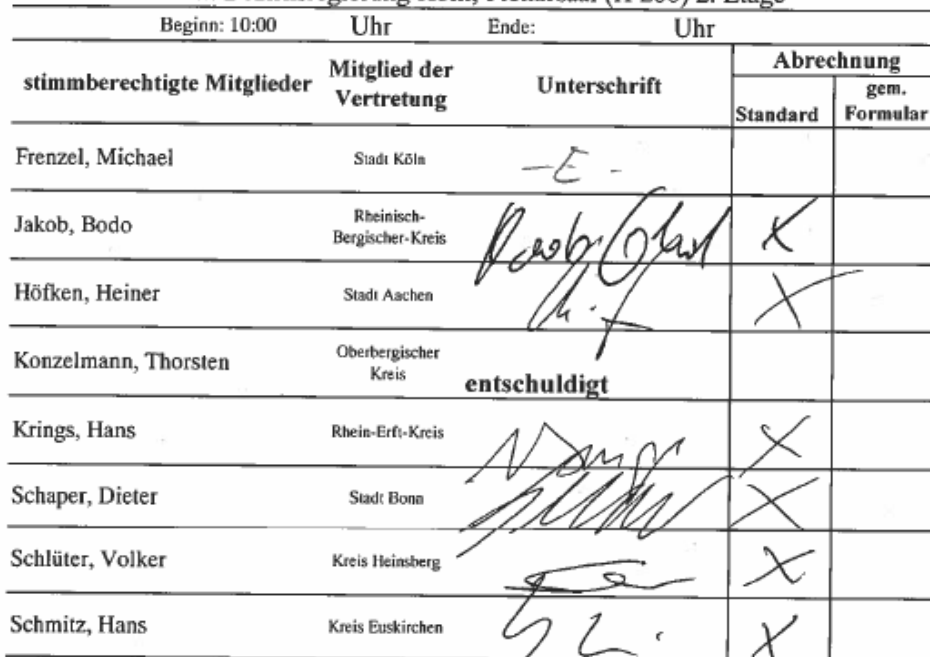 Beginn: 10:00 Uhr Ende: Uhr
stimmberechtigte Mitglieder Mitglied der Vertretung Unterschrift Abrechnung
Standard gem. Formular
Frenzel, Michael Stadt Köln -E-
Jakob, Bodo Rheinisch-Bergischer-Kreis X
Höfken, Heiner Stadt Aachen X
Konzelmann, Thorsten Oberbergischer Kreis entschuldigt
Krings, Hans Rhein-Erft-Kreis X
Schaper, Dieter Stadt Bonn X
Schlüter, Volker Kreis Heinsberg X
Schmitz, Hans Kreis Euskirchen X